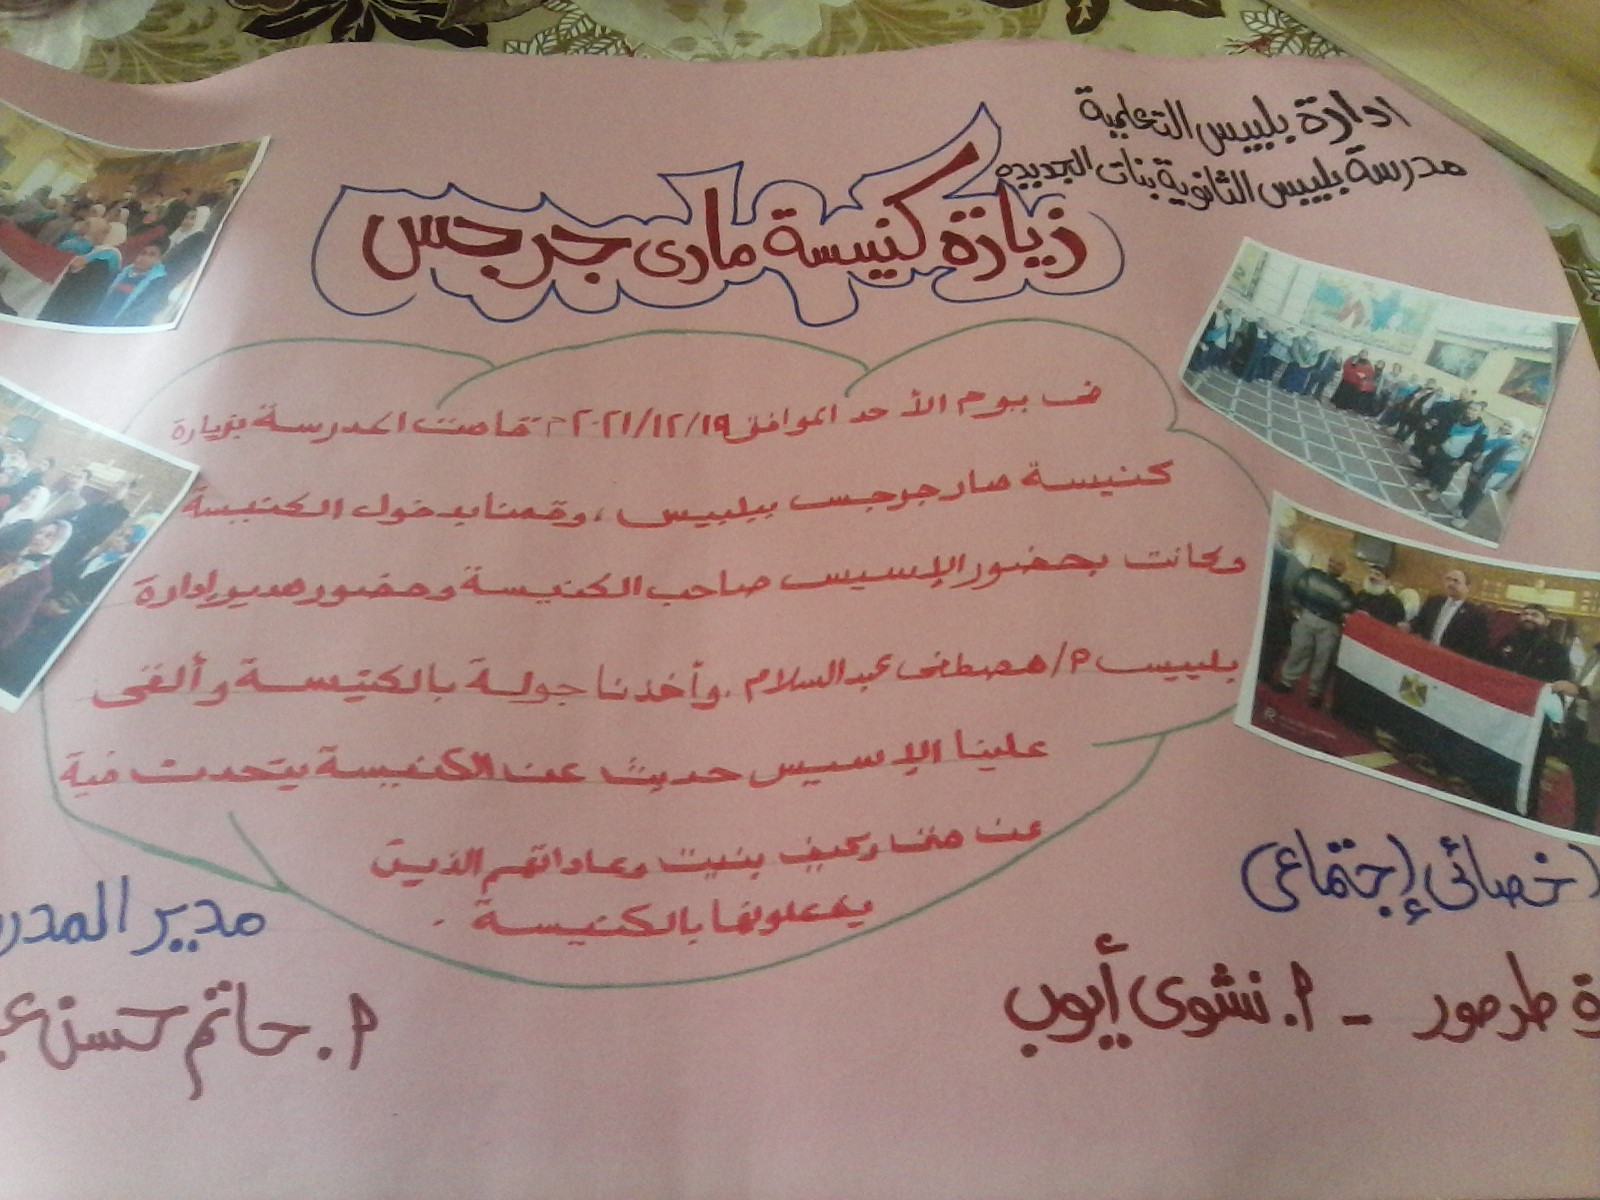 ادارة بلبيس التعليمية
مدرسة بلبيس الثانوية بنات الجديده
زيارة كنيسة مارى جرجس
فى يوم الأحد الموافق ٢٠٢١/١٢/١٩م قامت المدرسة بزيارة
كنيسة مار جرجس ببلبيس ، وقمنا بدخول الكنيسة
وكانت بحضور الإسيس صاحب الكنيسة وحضور مدير إدارة
بلبيس م/مصطفى عبد السلام . وأخذنا جولة بالكنيسة وألقى
علينا الإسيس حديث عن الكنيسة يتحدث فية
عن متى وكيف بنيت وعاداتهم الذين
يفعلونها بالكنيسة .
اخصائى إجتماعى
ة طرمور - م. نشوى أيوب
مدير المدر
م. حاتم حسن